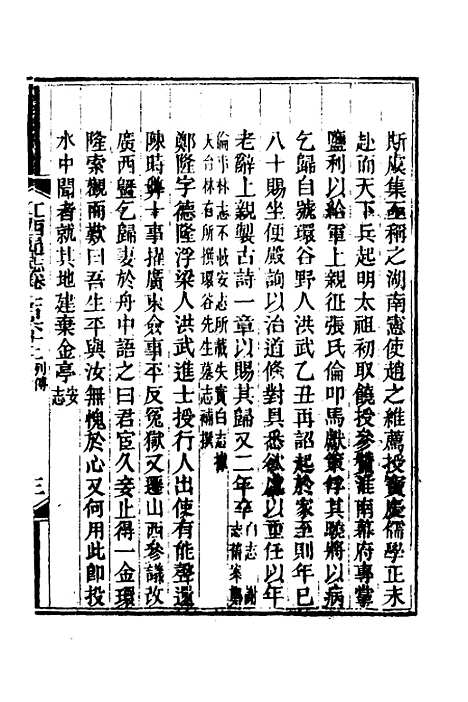 斯虞集至稱之湖南憲使趙之維薦授寶慶儒學正未
赴而天下兵起明太祖初取饒授參贊淮南幕府專掌
鹽利以給軍上親征張氏倫叩馬獻策俘其驍將以病
乞歸自號環谷野人洪武乙丑再詔起於家至則年已
八十賜坐便殿詢以治道條對具悉欲處以重任以年
老辭上親製古詩一章以賜其歸又二年卒白志 謝志稿
倫 林志不載安志所載失實白志據
大台林有所撰環谷先生墓志補撰
鄭隆字德隆浮梁人洪武進士授行人出使有能聲還
陳時弊十事擢廣東僉事平反冤獄又遷山西參議改
廣西暨乞歸妻於舟中語之曰君宦久妾止得一金環
隆索觀而歎曰吾生平與汝無愧於心又何用此卽投
水中聞者就其地建棄金亭安志
江西通志卷一百六十二 列傳 三